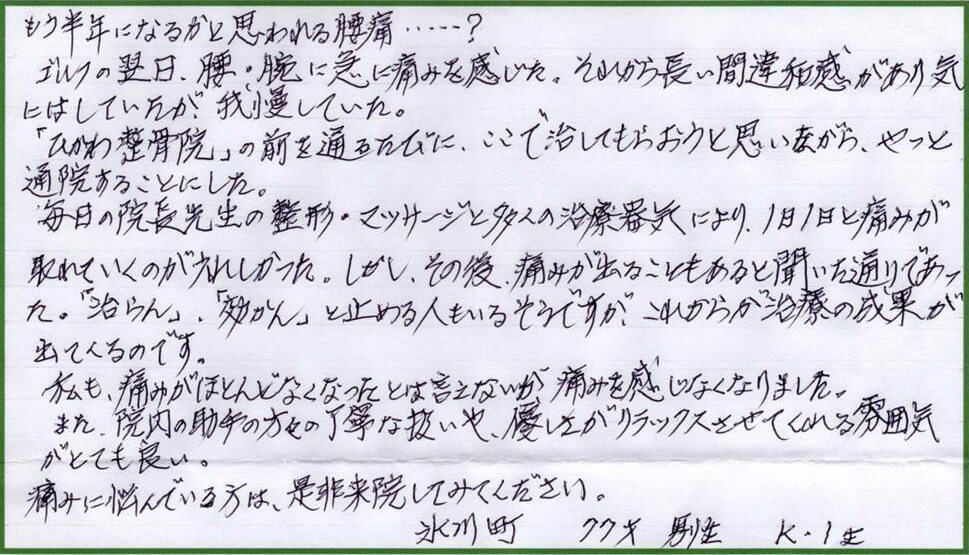 もう半年になるかと思われる腰痛……?
ゴルフの翌日、腰・腕に急に痛みを感じた。それから長い間違和感があり気
にはしていたが、我慢していた。
「ひかわ整骨院」の前を通るたびに、ここで治してもらおうと思いながら、やっと
通院することにした。
毎日の院長先生の整形・マッサージと多くの治療器気により、1日1日と痛みが
取れていくのがうれしかった。しかし、その後、痛みが出ることもあると聞いた通りであっ
た。「治らん」、「効かん」と止める人もいるそうですが、これからが治療の成果が
出てくるのです。
私も、痛みがほとんどなくなったとは言えないが、痛みを感じなくなりました。
また、院内の助手の方々の丁寧な扱いや、優しさがリラックスさせてくれる雰囲気
がとても良い。
痛みに悩んでいる方は、是非来院してみてください。
氷川町 77才 男性 K・I生